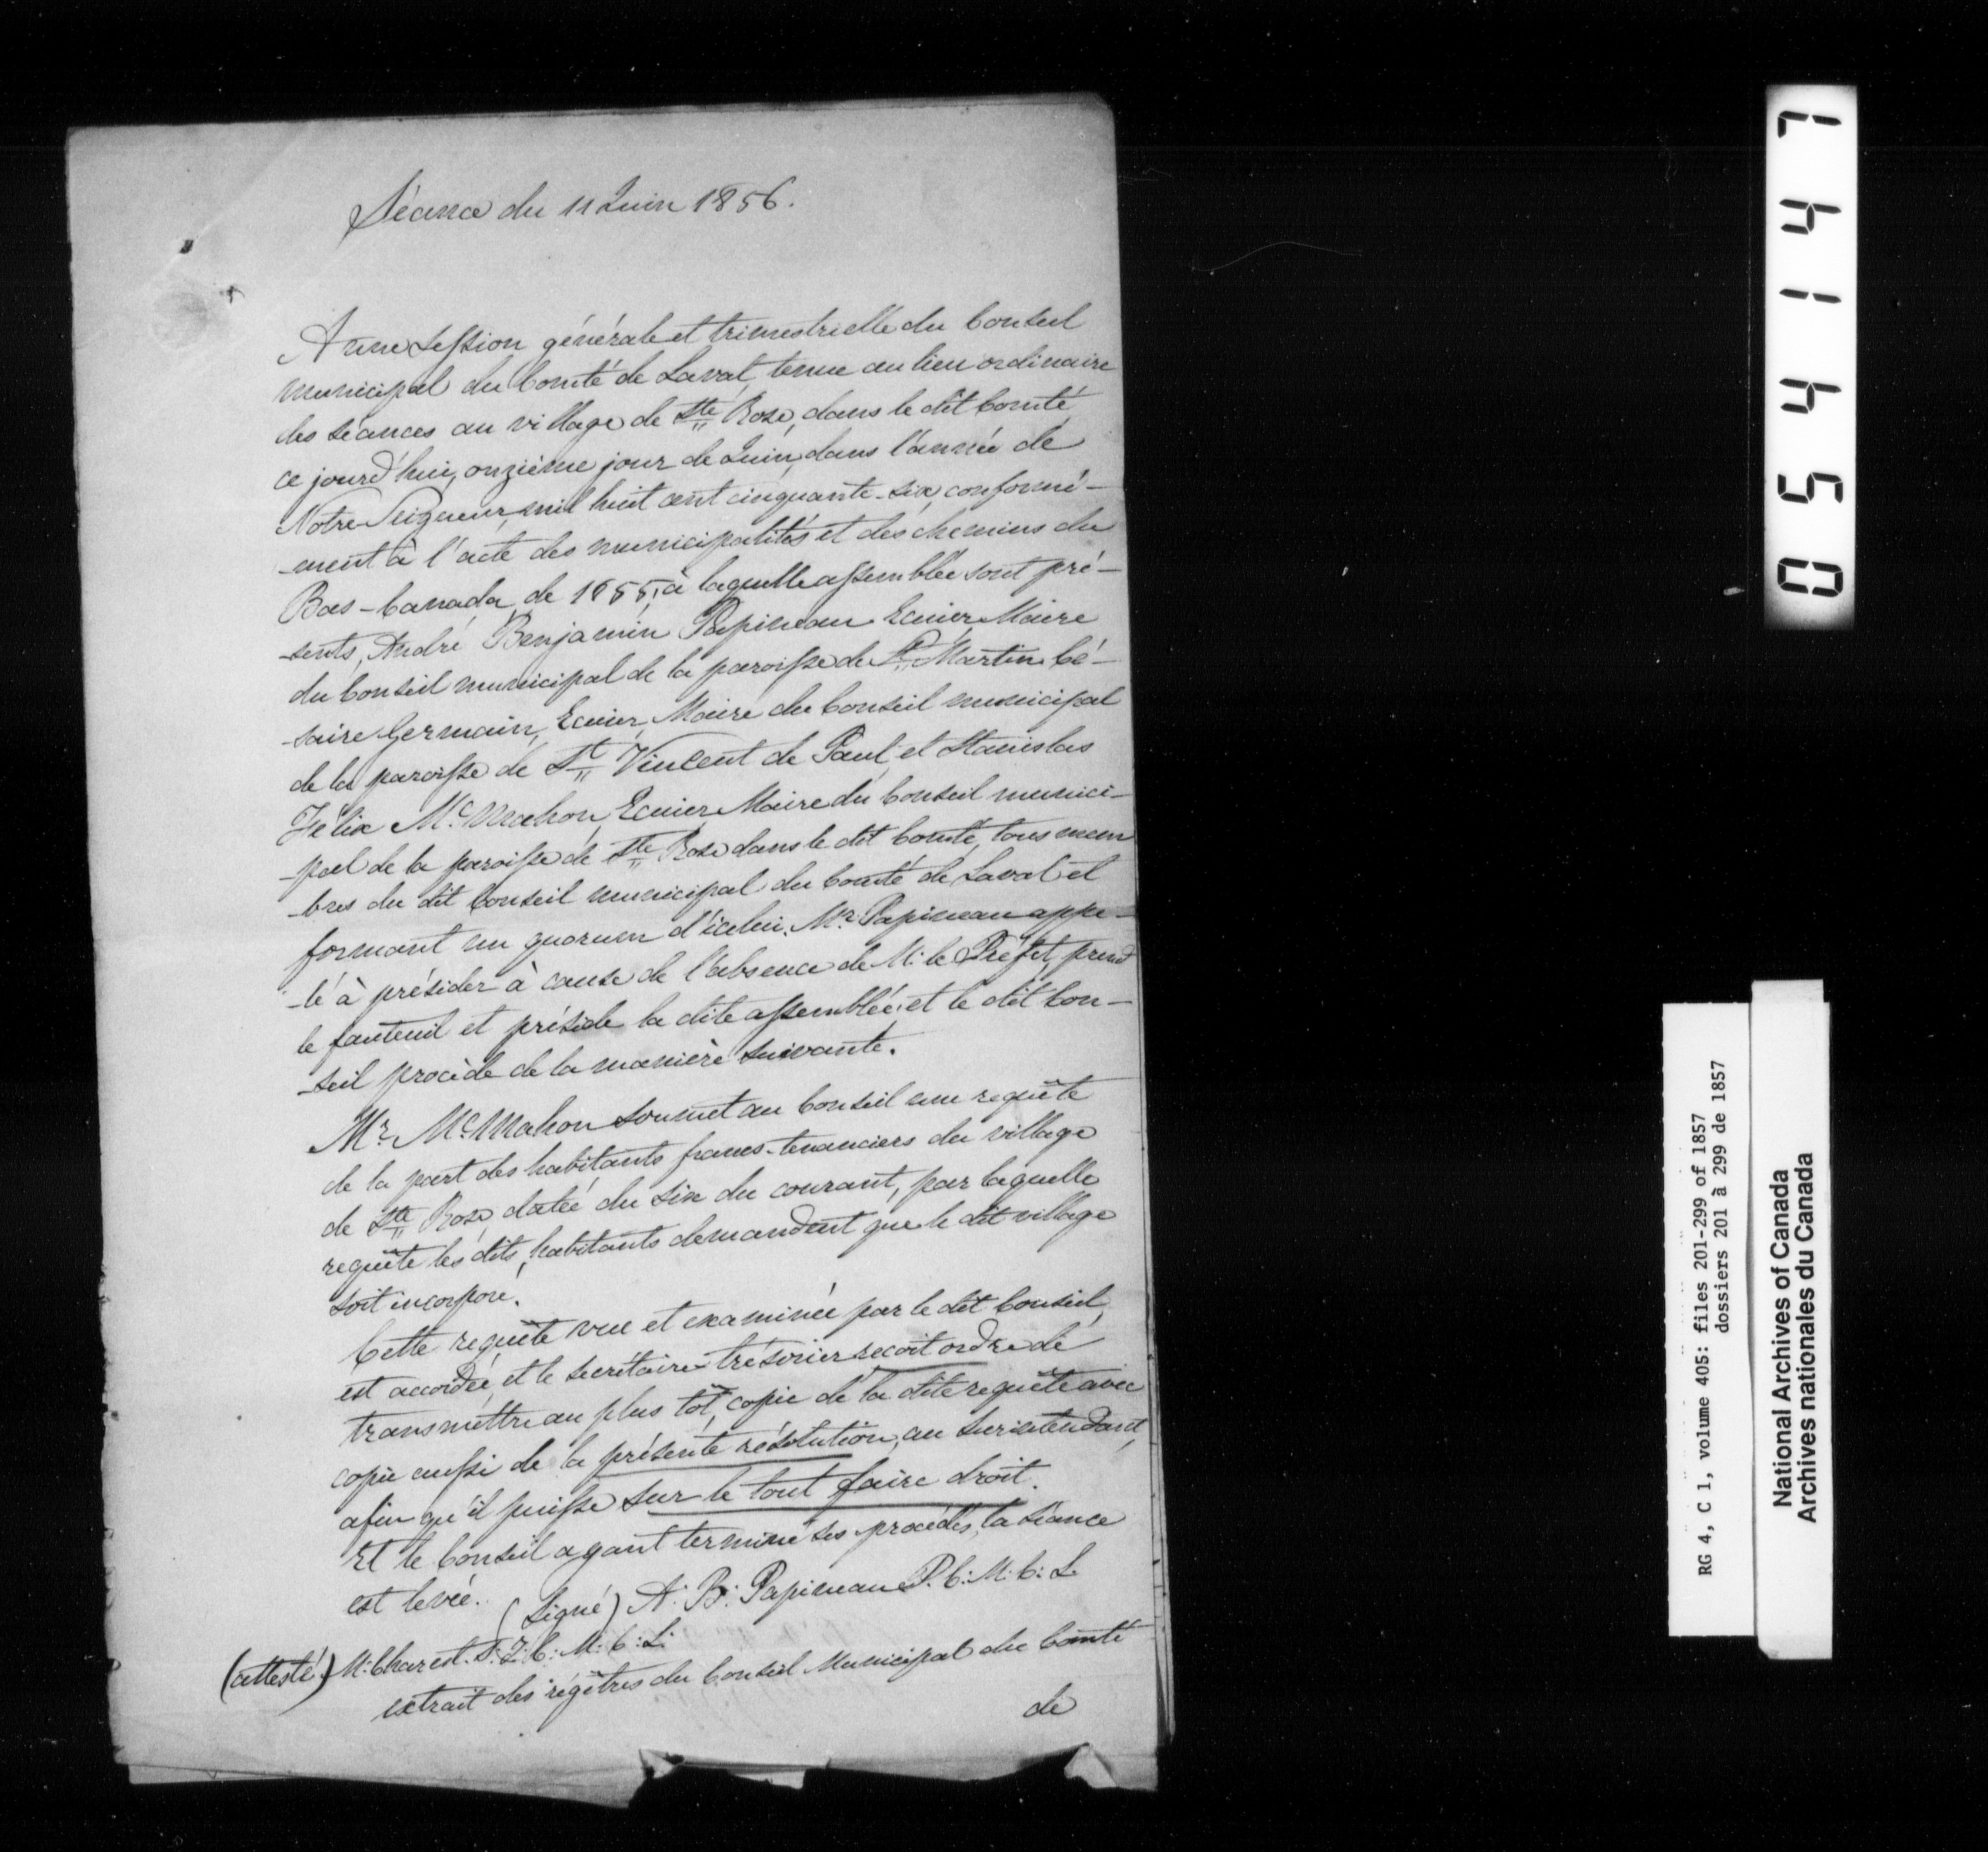 Séance du 11 Juin 1856.
A une Session générale et trimestrielle du Conseil
municipal du Comté de Laval, tenue au lieu ordinaire
des séances au village de Ste Rose, dans le dit Comté,
ce jourd'hui, onzième jour de Juin, dans l'année de
Notre Seigneur, mil huit cent cinquante-six, conformé-
-ment à l'acte des municipalités et des chemins du
Bas-Canada, de 1855, à laquelle assemblée sont pré-
-sents, André Benjamin Papineau Ecuier, Maire
du Conseil municipal de la paroisse de St Martin, Cé-
-saire Germain, Ecuier, Maire du Conseil municipal
de la paroisse de St Vincent de Paul, et Stanislas
Félix McMahon, Ecuier, Maire du Conseil munici-
-pal de la paroisse de Ste Rose dans le dit Comté, tous mem
-bres du dit Conseil municipal du Comté de Laval et
formant un quorum d'icelui. Mr. Papineau appe-
-lé à présider à cause de l'absence de M. le Préfet, prend
le fauteuil et préside la dite assemblée, et le dit Con-
-seil procède de la manière suivante.
Mr. McMahon soumet au Conseil une requête
de la part des habitants francs-tenanciers du village
de Ste Rose, datée du six du courant, par laquelle
requête les dits habitants demandent que le dit village
soit incorporé.
Cette requête vue et examinée par le dit Conseil,
est accordée, et le secrétaire-trésorier recoit ordre de
transmettre au plus tôt, copie de la dite requête avec
copie aussi de la présente résolution, au Surintendant,
afin qu'il puisse sur le tout faire droit.
Et le Conseil ayant terminé ses procédés, la séance
est levée.
(Signé) A. B. Papineau P. C. M. C. L.
(attesté) M. Charest. S. T. C. M. C. L.
extrait des régîtres du Conseil Municipal du Comté
de
054147
RG 4, C 1, volume 405: files 201-299 of 1857
dossiers 201 à 299 de 1857
National Archives of Canada
Archives nationales du Canada